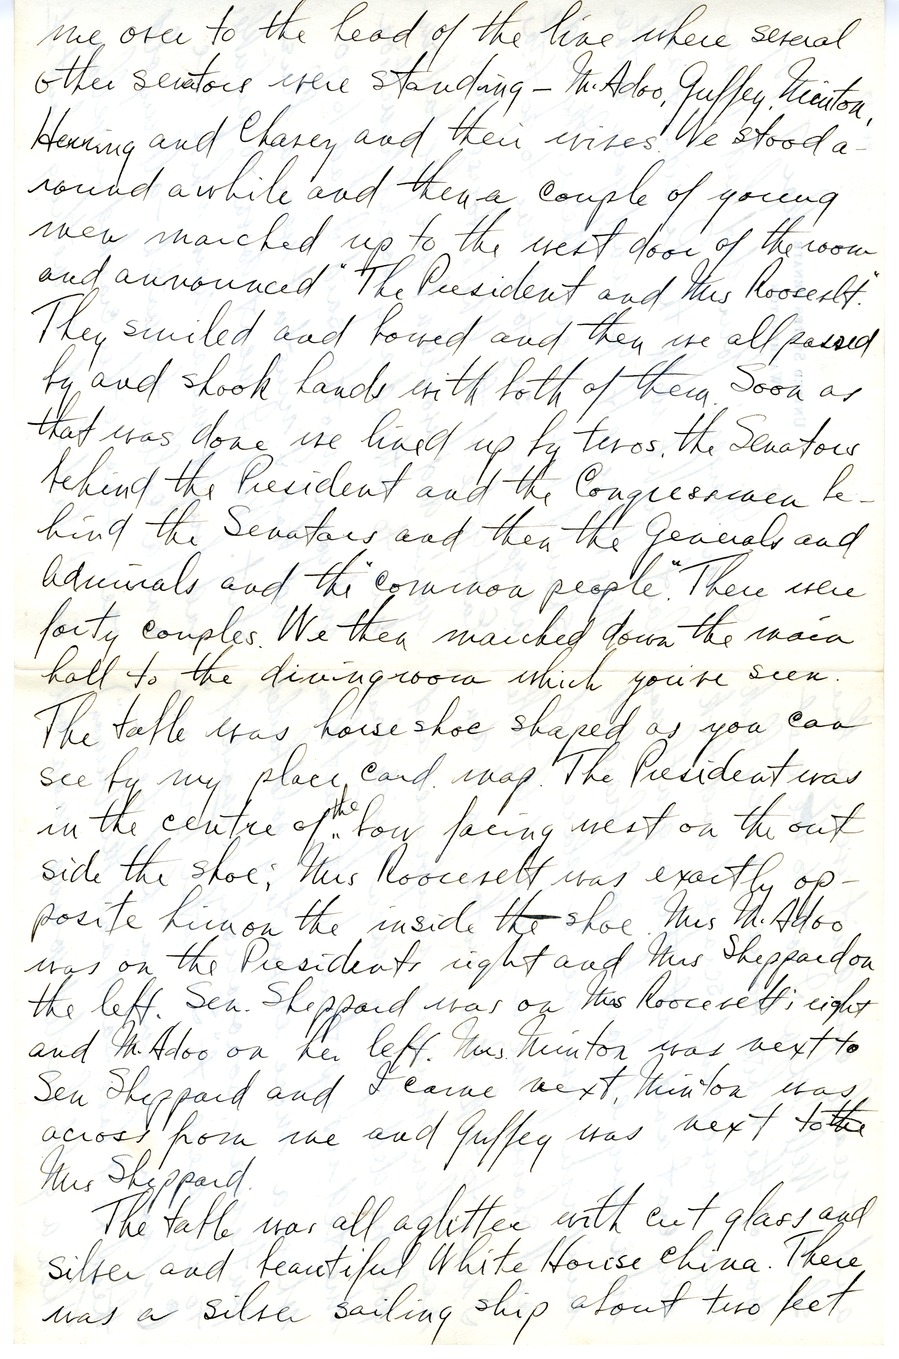 me over to the head of the line where several
other senators were standing – McAdoo, Guffey, Minton,
Herring and Chavey and their wives. We stood a-
round awhile and then a couple of young
men marched up to the west door of the room
and announced "The President and Mrs Roosevelt."
They smiled and bowed and then we all passed
by and shook hands with both of them. Soon as
that was done we lined up by twos, the Senators
behind the President and the Congressmen be-
hind the Senators and then the Generals and
Admirals and the "common people". There were
forty couples. We then marched down the main
hall to the diningroom which you've seen.
The table was horseshoe shaped as you can
see by my place card map. The President was
in the centre of the bow facing west on the out
side the shoe; Mrs Roosevelt was exactly op-
posite him on the inside the shoe. Mrs McAdoo
was on the Presidents right and Mrs Sheppard on
the left. Sen. Sheppard was on Mrs Roosevelt's right
and McAdoo on her left. Mrs. Minton was next to
Sen Sheppard and I came next, Minton was
across from me and Guffey was next to the
Mrs Sheppard.
The table was all aglitter with cut glass and
silver and beautiful White House china. There
was a silver sailing ship about two feet